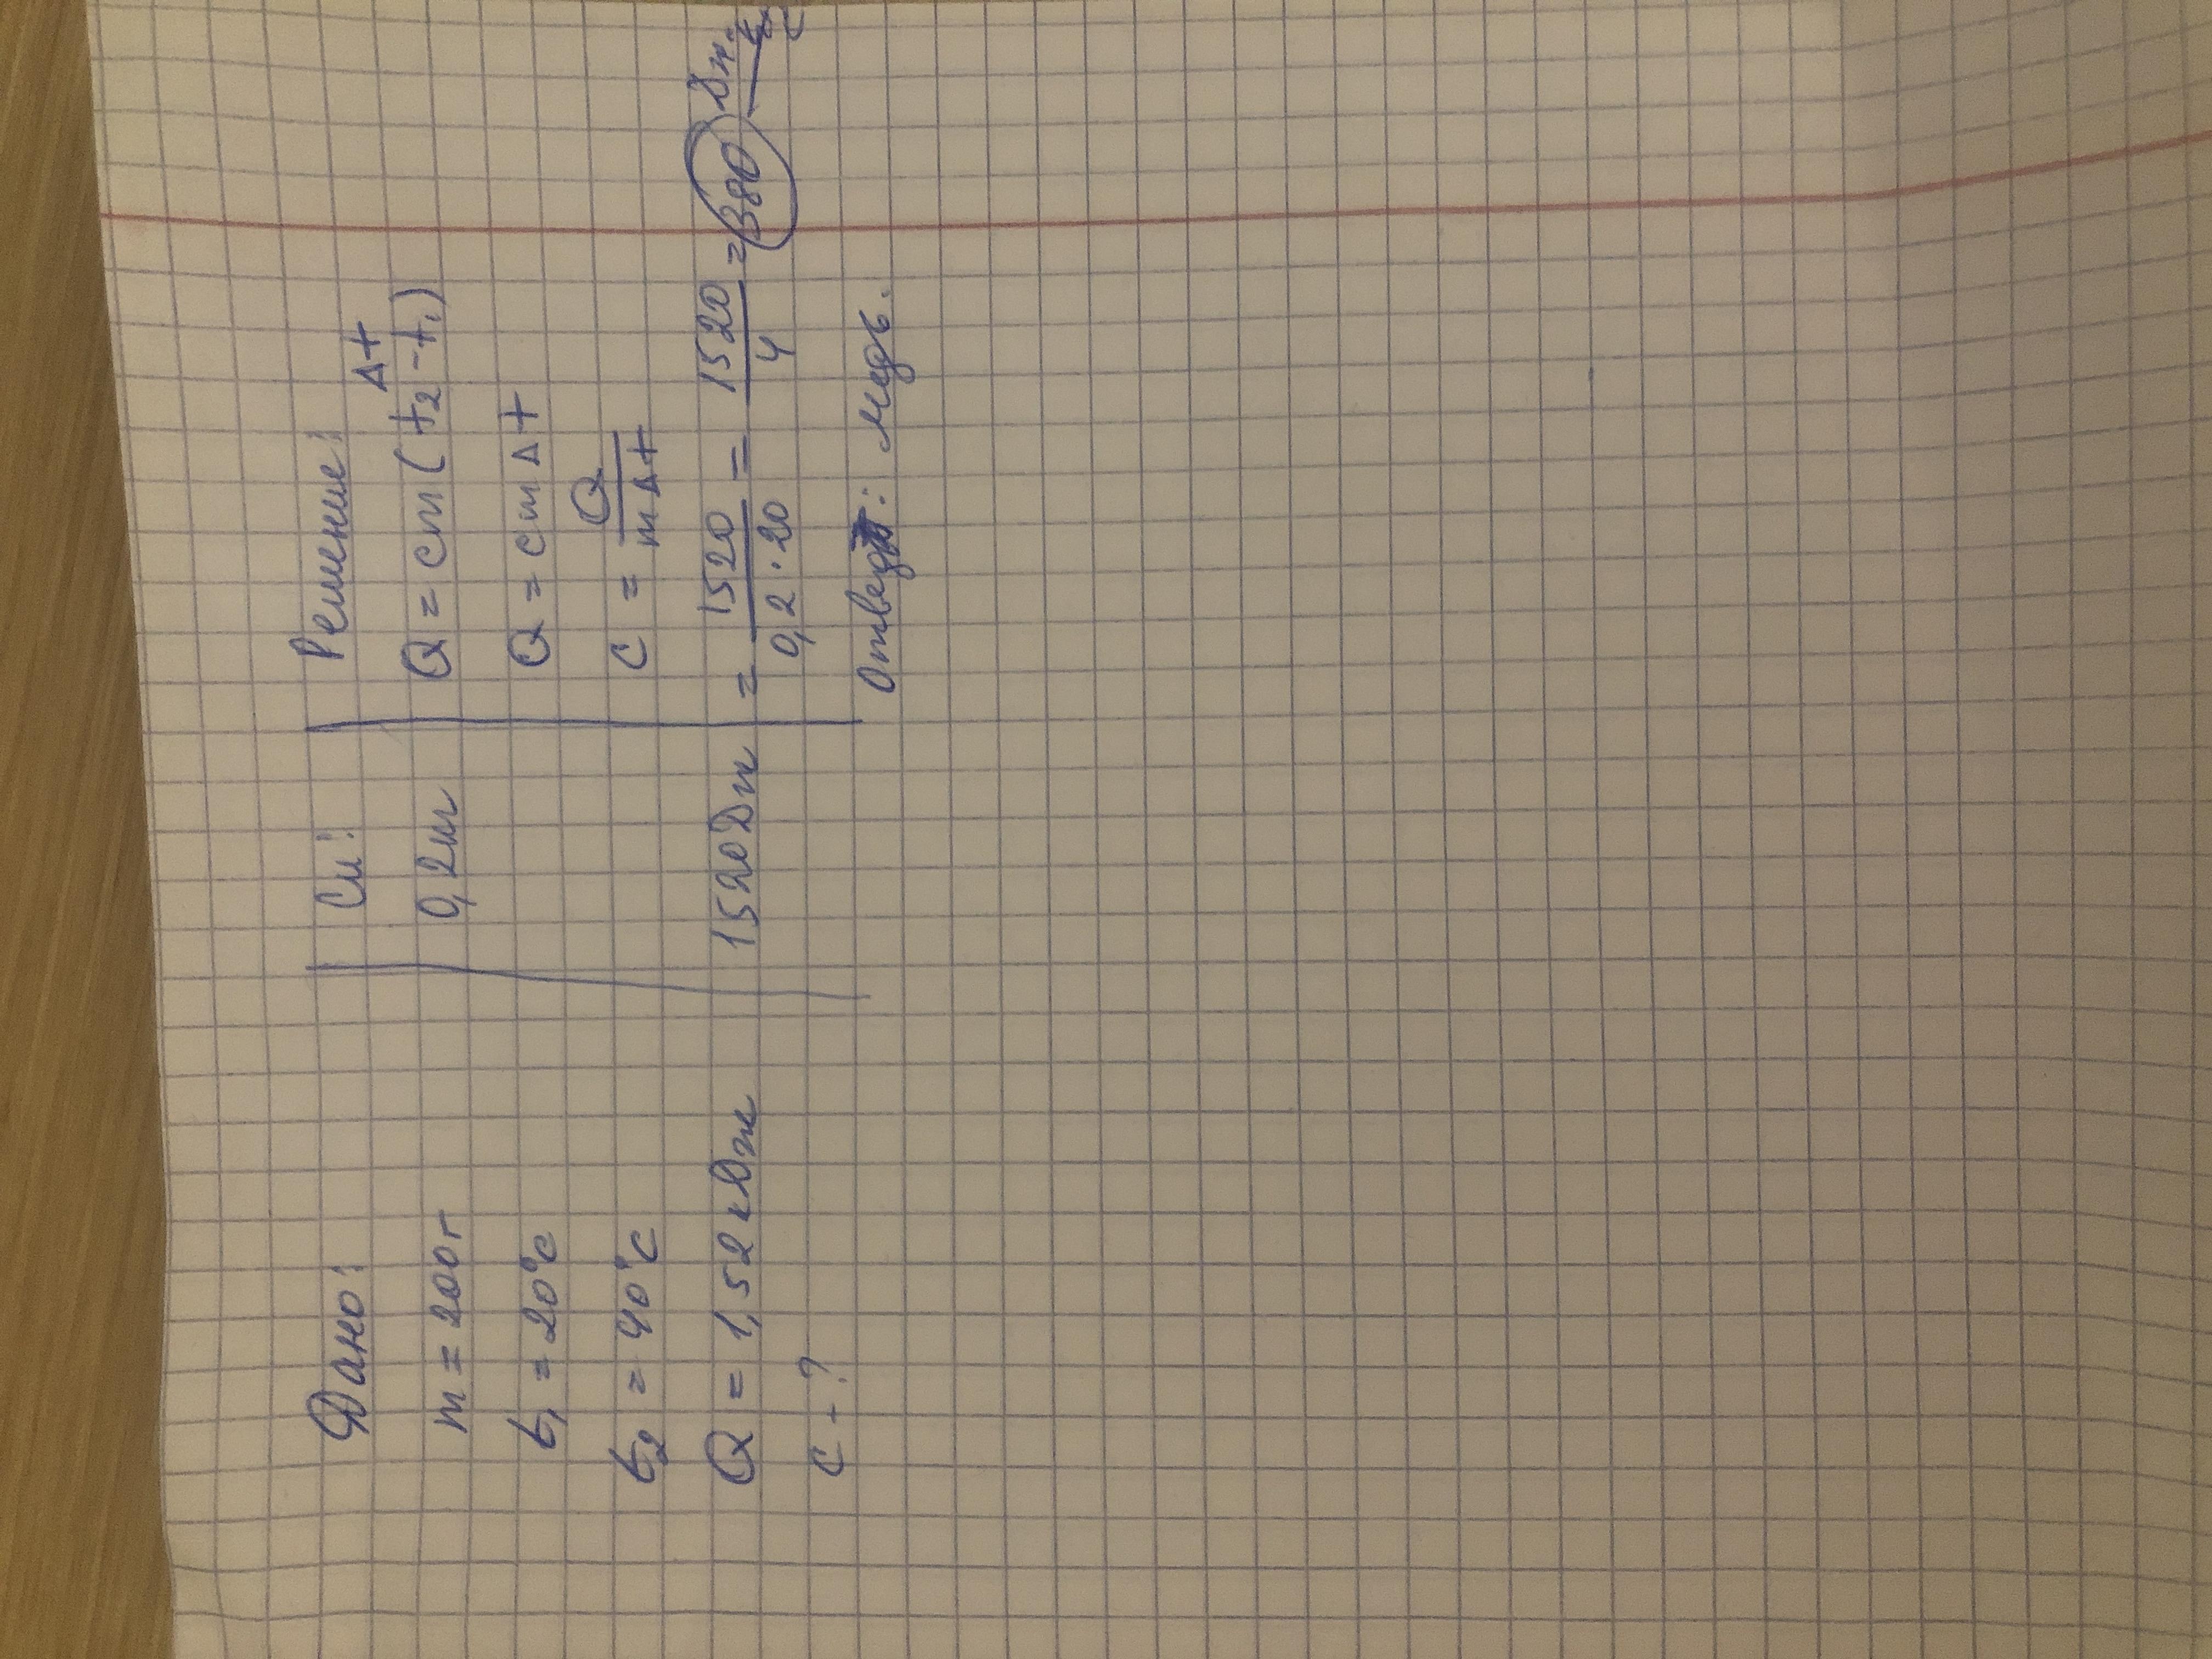 Дано:
m = 200г
t₁ = 20°C
t₂ = 40°C
Q = 1,52 кДж
c - ?
Си:
0,2кг
1520Дж
Решение:
Δt
Q = cm(t₂-t₁)
Q = cmΔt
c = Q/mΔt
= 1520/0,2·20 = 1520/4 = 380 Дж/
Ответ: медь.